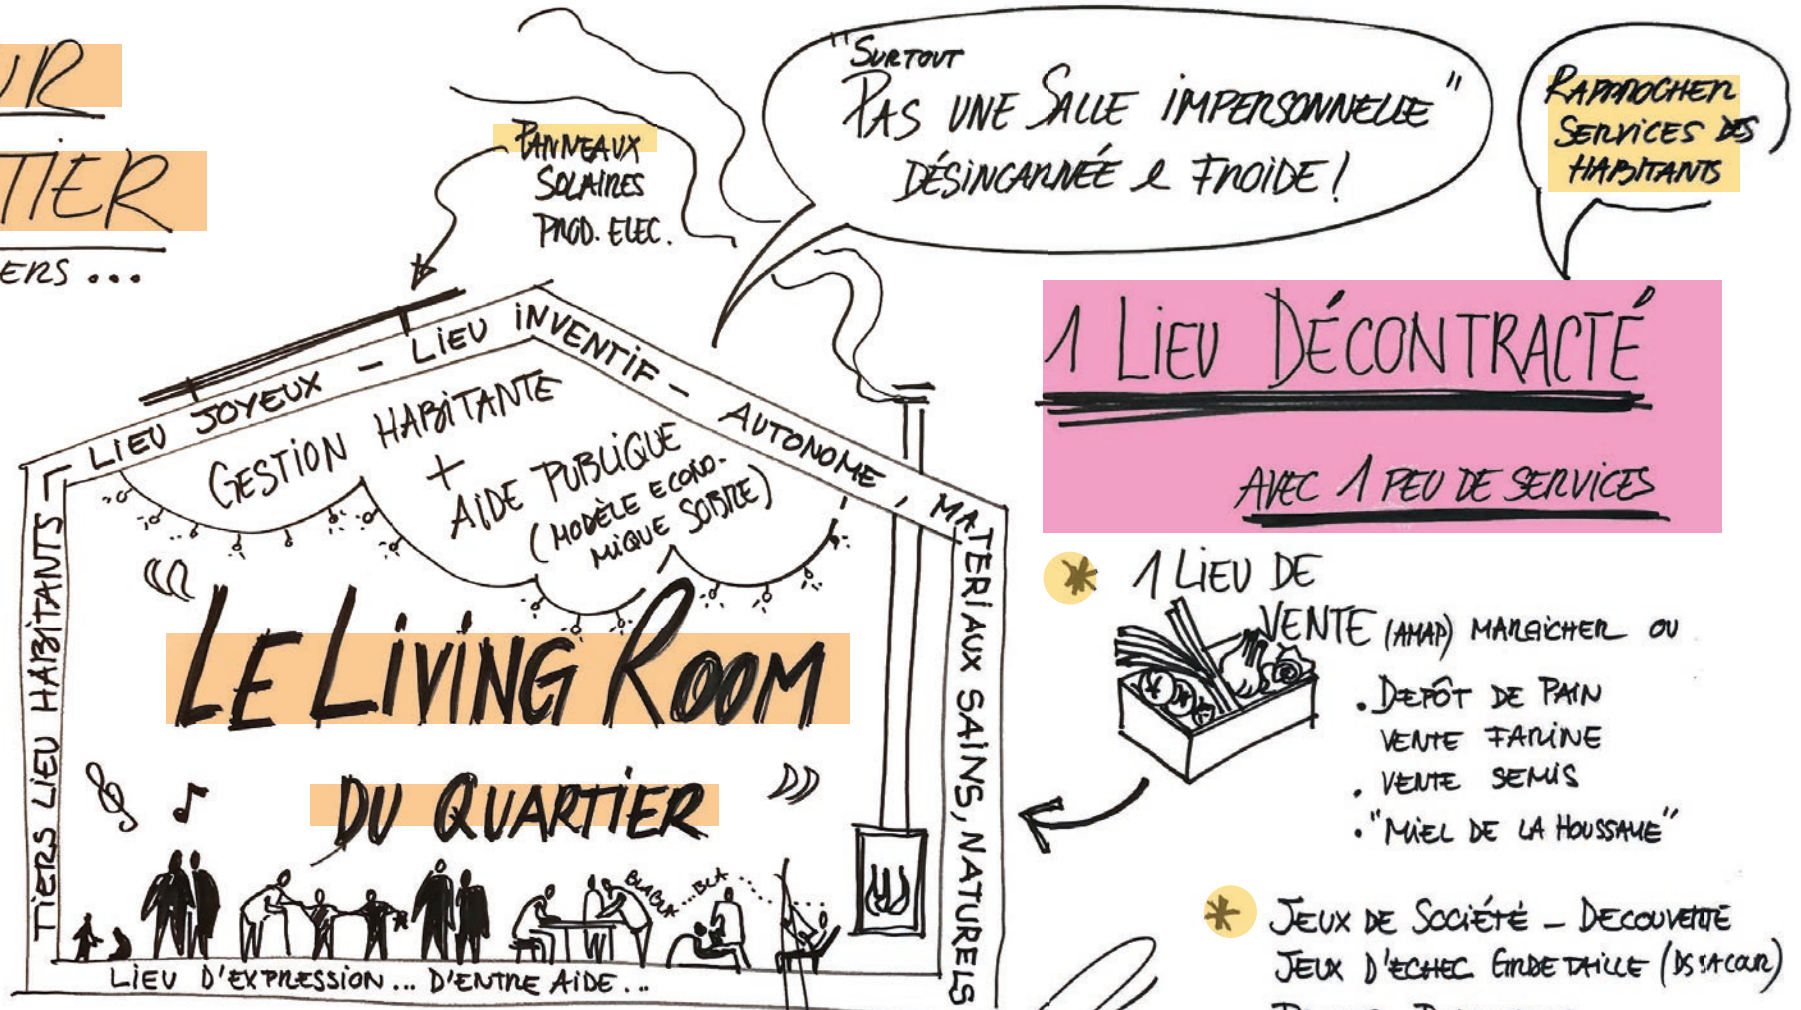 UR
TIER
ERS ...
PANNEAUX
SOLAIRES
PROD. ELEC.
"SURTOUT
PAS UNE SALLE IMPERSONNELLE"
DÉSINCARNÉE & FROIDE !
RAPPROCHER
SERVICES DES
HABITANTS
TIERS LIEU HABITANTS - LIEU JOYEUX - LIEU INVENTIF - AUTONOME, MATERIAUX SAINS, NATURELS
GESTION HABITANTE
+
AIDE PUBLIQUE
(MODÈLE ECONO-
MIQUE SOBRE)
"LE LIVING ROOM
DU QUARTIER"
BLABLA...BLA....
LIEU D'EXPRESSION... D'ENTRE AIDE...
1 LIEU DÉCONTRACTÉ
AVEC 1 PEU DE SERVICES
* 1 LIEU DE
VENTE (AMAP) MARAICHER OU
. DEPÔT DE PAIN
VENTE FARINE
. VENTE SEMIS
. "MIEL DE LA HOUSSAUE"
* JEUX DE SOCIÉTÉ - DECOUVERTE
JEUX D'ECHEC GRDE TAILLE (DS LA COUR)